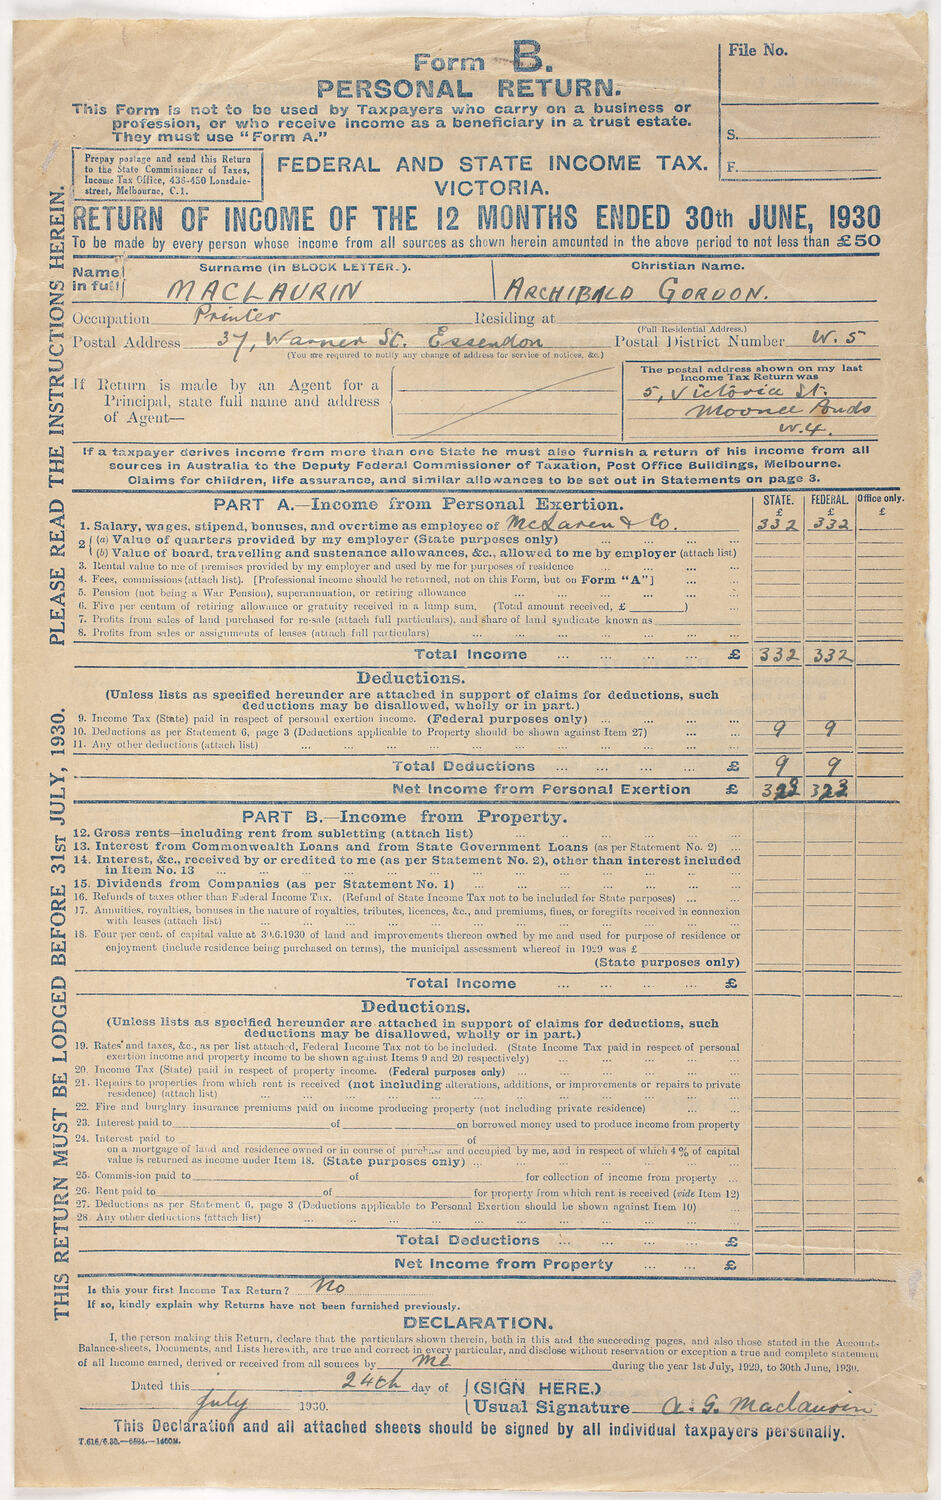 Form B.
PERSONAL RETURN.
This Form is not to be used by Taxpayers who carry on a business or
profession, or who receive income as a beneficiary in a trust estate.
They must use "Form A."
File No.
S.
F.
Prepay postage and send this Return
to the State Commissioner of Taxes,
Income Tax Office, 436-450 Lonsdale-
street, Melbourne, C.1.
FEDERAL AND STATE INCOME TAX.
VICTORIA.
RETURN OF INCOME OF THE 12 MONTHS ENDED 30th JUNE, 1930
To be made by every person whose income from all sources as shown herein amounted in the above period to not less than £50
PLEASE READ THE INSTRUCTIONS HEREIN.
THIS RETURN MUST BE LODGED BEFORE 31ST JULY, 1930.
Name in full
Surname (in BLOCK LETTERS.).
MACLAURIN
Christian Name.
ARCHIBALD GORDON.
Occupation Printer Residing at
(Full Residential Address.)
Postal Address 37, Warner St. Essendon Postal District Number W. 5
(You are required to notify any change of address for service of notices, &c.)
If Return is made by an Agent for a
Principal, state full name and address
of Agent—
The postal address shown on my last
Income Tax Return was
5, Victoria St.
Moonee Ponds
W.4.
If a taxpayer derives income from more than one State he must also furnish a return of his income from all
sources in Australia to the Deputy Federal Commissioner of Taxation, Post Office Buildings, Melbourne.
Claims for children, life assurance, and similar allowances to be set out in Statements on page 3.
PART A.—Income from Personal Exertion.
STATE. FEDERAL. Office only.
£ £ £
1. Salary, wages, stipend, bonuses, and overtime as employee of McLaren & Co. 332 332
2 (a) Value of quarters provided by my employer (State purposes only)
(b) Value of board, travelling and sustenance allowances, &c., allowed to me by employer (attach list)
3. Rental value to me of premises provided by my employer and used by me for purposes of residence
4. Fees, commissions (attach list). [Professional income should be returned, not on this Form, but on Form "A"]
5. Pension (not being a War Pension), superannuation, or retiring allowance
6. Five per centum of retiring allowance or gratuity received in a lump sum. (Total amount received, £ )
7. Profits from sales of land purchased for re-sale (attach full particulars), and share of land syndicate known as
8. Profits from sales or assignments of leases (attach full particulars)
Total Income £ 332 332
Deductions.
(Unless lists as specified hereunder are attached in support of claims for deductions, such
deductions may be disallowed, wholly or in part.)
9. Income Tax (State) paid in respect of personal exertion income. (Federal purposes only)
10. Deductions as per Statement 6, page 3 (Deductions applicable to Property should be shown against Item 27) 9 9
11. Any other deductions (attach list)
Total Deductions £ 9 9
Net Income from Personal Exertion £ 323 323
PART B.—Income from Property.
12. Gross rents—including rent from subletting (attach list)
13. Interest from Commonwealth Loans and from State Government Loans (as per Statement No. 2)
14. Interest, &c., received by or credited to me (as per Statement No. 2), other than interest included
in Item No. 13
15. Dividends from Companies (as per Statement No. 1)
16. Refunds of taxes other than Federal Income Tax. (Refund of State Income Tax not to be included for State purposes)
17. Annuities, royalties, bonuses in the nature of royalties, tributes, licences, &c., and premiums, fines, or foregifts received in connexion
with leases (attach list)
18. Four per cent. of capital value at 30.6.1930 of land and improvements thereon owned by me and used for purpose of residence or
enjoyment (include residence being purchased on terms), the municipal assessment whereof in 1929 was £
(State purposes only)
Total Income £
Deductions.
(Unless lists as specified hereunder are attached in support of claims for deductions, such
deductions may be disallowed, wholly or in part.)
19. Rates and taxes, &c., as per list attached, Federal Income Tax not to be included. (State Income Tax paid in respect of personal
exertion income and property income to be shown against Items 9 and 20 respectively)
20. Income Tax (State) paid in respect of property income. (Federal purposes only)
21. Repairs to properties from which rent is received (not including alterations, additions, or improvements or repairs to private
residence) (attach list)
22. Fire and burglary insurance premiums paid on income producing property (not including private residence)
23. Interest paid to of on borrowed money used to produce income from property
24. Interest paid to of
on a mortgage of land and residence owned or in course of purchase and occupied by me, and in respect of which 4 % of capital
value is returned as income under Item 18. (State purposes only)
25. Commission paid to of for collection of income from property
26. Rent paid to of for property from which rent is received (vide Item 12)
27. Deductions as per Statement 6, page 3 (Deductions applicable to Personal Exertion should be shown against Item 10)
28. Any other deductions (attach list)
Total Deductions £
Net Income from Property £
Is this your first Income Tax Return? No
If so, kindly explain why Returns have not been furnished previously.
DECLARATION.
I, the person making this Return, declare that the particulars shown therein, both in this and the succeeding pages, and also those stated in the Accounts,
Balance-sheets, Documents, and Lists herewith, are true and correct in every particular, and disclose without reservation or exception a true and complete statement
of all Income earned, derived or received from all sources by me during the year 1st July, 1929, to 30th June, 1930.
Dated this 24th day of
July 1930.
(SIGN HERE.)
Usual Signature A. G. Maclaurin
This Declaration and all attached sheets should be signed by all individual taxpayers personally.